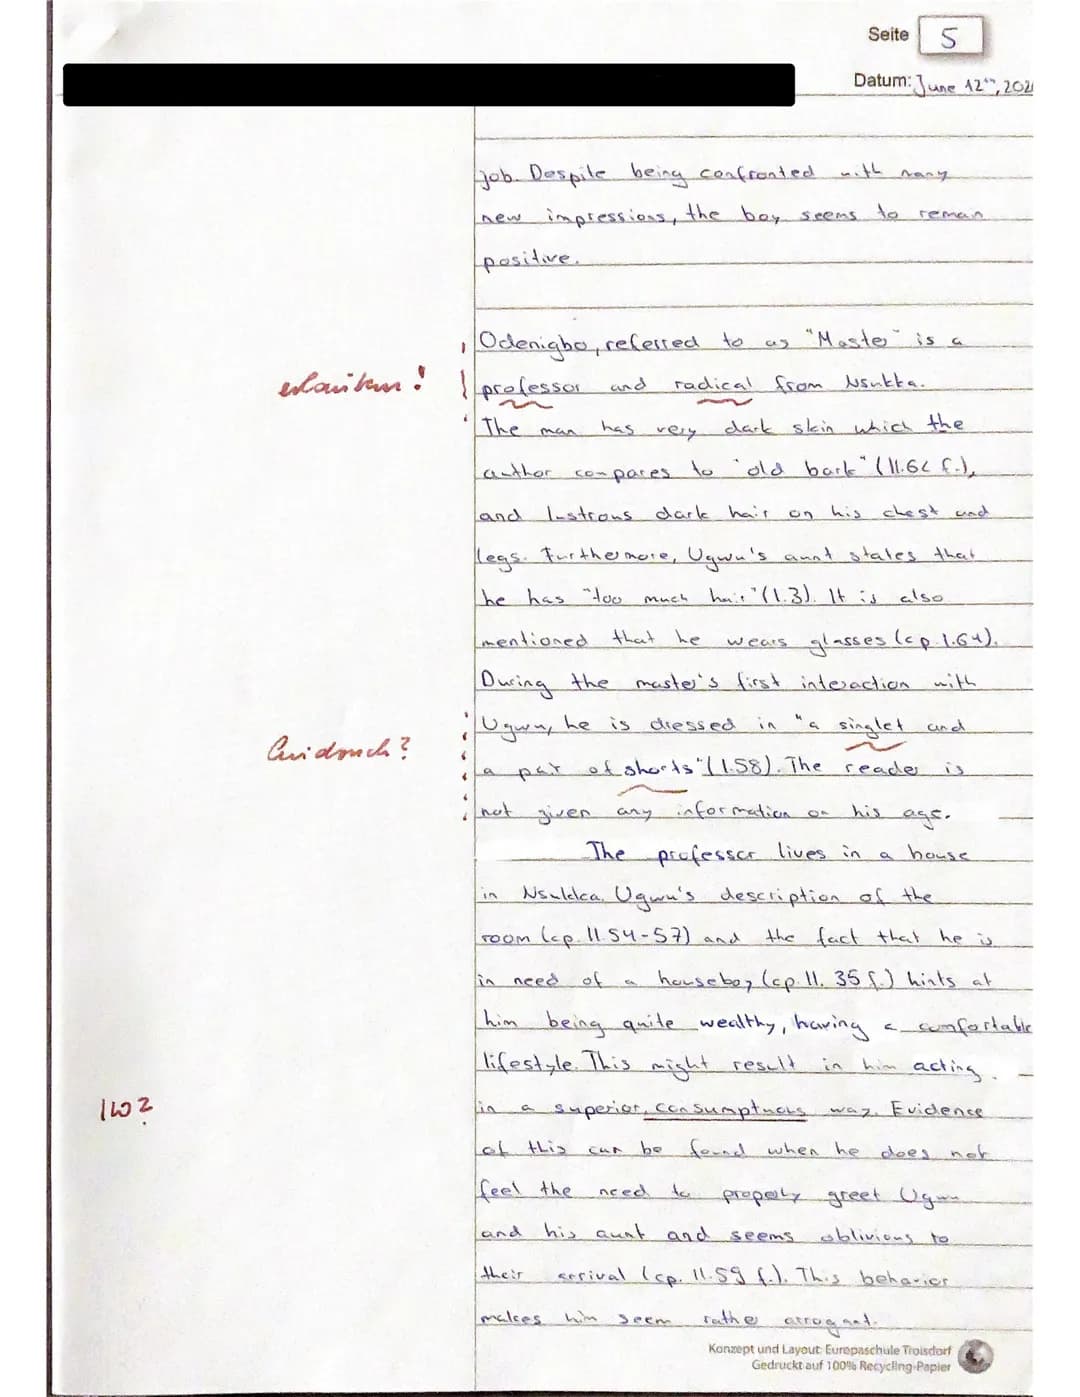 Seite 5
Datum: June 12th, 202
job. Despite being confronted with many
new impressions, the boy seems to remain
positive.
Odenigbo, referred to as "Master" is a
erläutern!
professor and radical from Nsukka.
The man has very dark skin which the
author compares to "old bark" (ll.62 f.),
and lustrous dark hair on his chest and
legs. Furthermore, Ugwu's aunt states that
he has "too much hair" (l.3). It is also
mentioned that he wears glasses (cp. l.64).
During the master's first interaction with
Ugwu, he is dressed in "a singlet and
a pair of shorts" (l.58). The reader is
not given any information on his age.
The professor lives in a house
in Nsukka. Ugwu's description of the
room (cp. ll.54-57) and the fact that he is
in need of a houseboy (cp. ll. 35 f.) hints at
him being quite wealthy, having a comfortable
lifestyle. This might result in him acting
IW?
in a superior, consumptuous way. Evidence
of this can be found when he does not
feel the need to properly greet Ugwu
and his aunt and seems oblivious to
their arrival (cp. ll.59 f.). This behavior
makes him seem rather arrogant.
Konzept und Layout: Europaschule Troisdorf
Gedruckt auf 100% Recycling-Papier